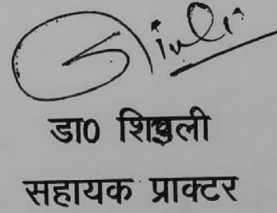 डा0 शिउली
सहायक प्राक्टर